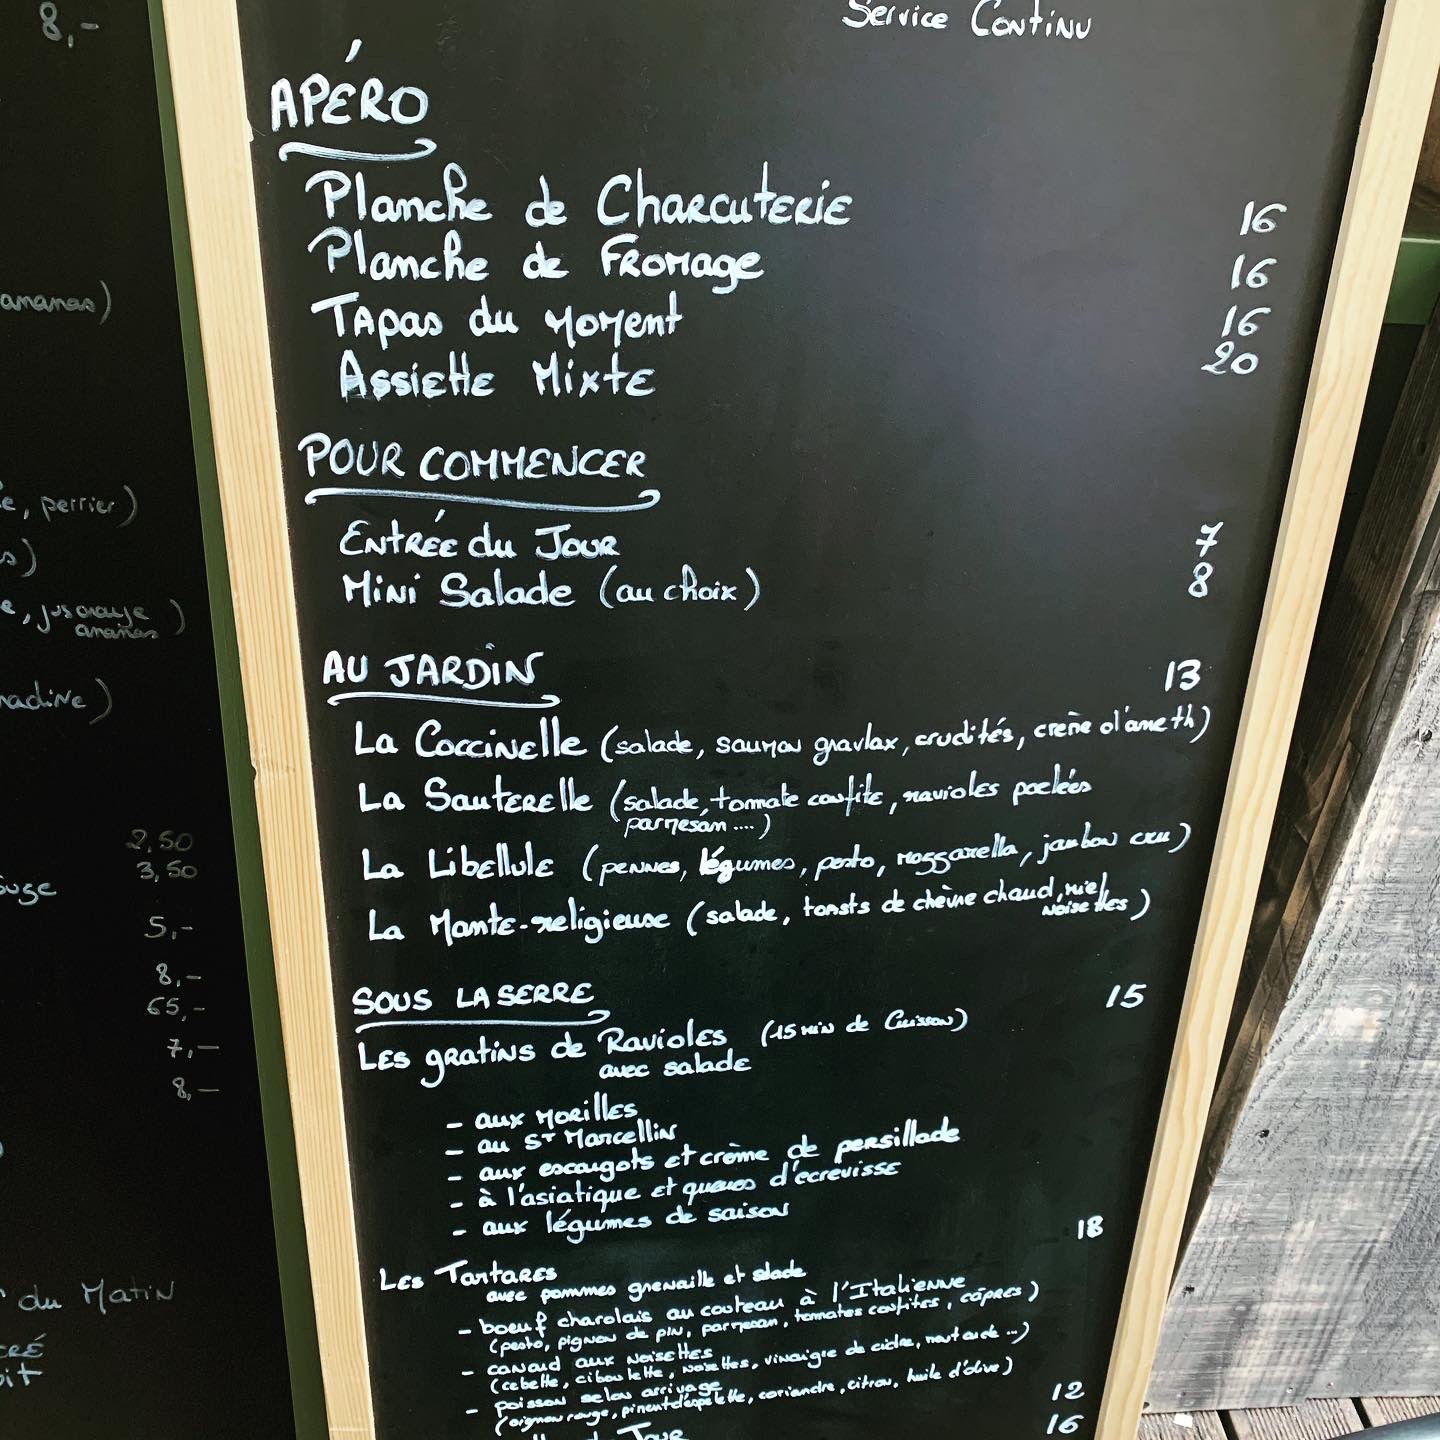 8,-
ananas)
e, perrier)
s)
e, jus orange
ananas)
nadine)
2,50
3,50
5,-
8,-
65,-
7,-
8,-
du Matin
Service Continu
APÉRO
Planche de Charcuterie 16
Planche de Fromage 16
Tapas du moment 16
Assiette Mixte 20
POUR COMMENCER
Entrée du Jour 7
Mini Salade (au choix) 8
AU JARDIN 13
La Coccinelle (salade, saumon gravlax, crudités, crème d'aneth)
La Sauterelle (salade, tomate confite, ravioles poelées
parmesan ....)
La Libellule (pennes, légumes, pesto, mozzarella, jambon cru)
La Mante-religieuse (salade, toasts de chèvre chaud, miel
noisettes)
SOUS LA SERRE 15
Les gratins de Ravioles (15 min de Cuisson)
avec salade
- aux morilles
- au St Marcellin
- aux escargots et crème de persillade
- à l'asiatique et queues d'ecrevisse
- aux légumes de saison
18
Les Tartares
avec pommes grenaille et salade
- boeuf charolais au couteau à l'Italienne
(pesto, pignon de pin, parmesan, tomates confites, câpres)
- canard aux noisettes
(cebette, ciboulette, noisettes, vinaigre de cidre, moutarde ...)
- poisson selon arrivage
(oignon rouge, piment d'espelette, coriandre, citron, huile d'olive)
12
du Jour 16